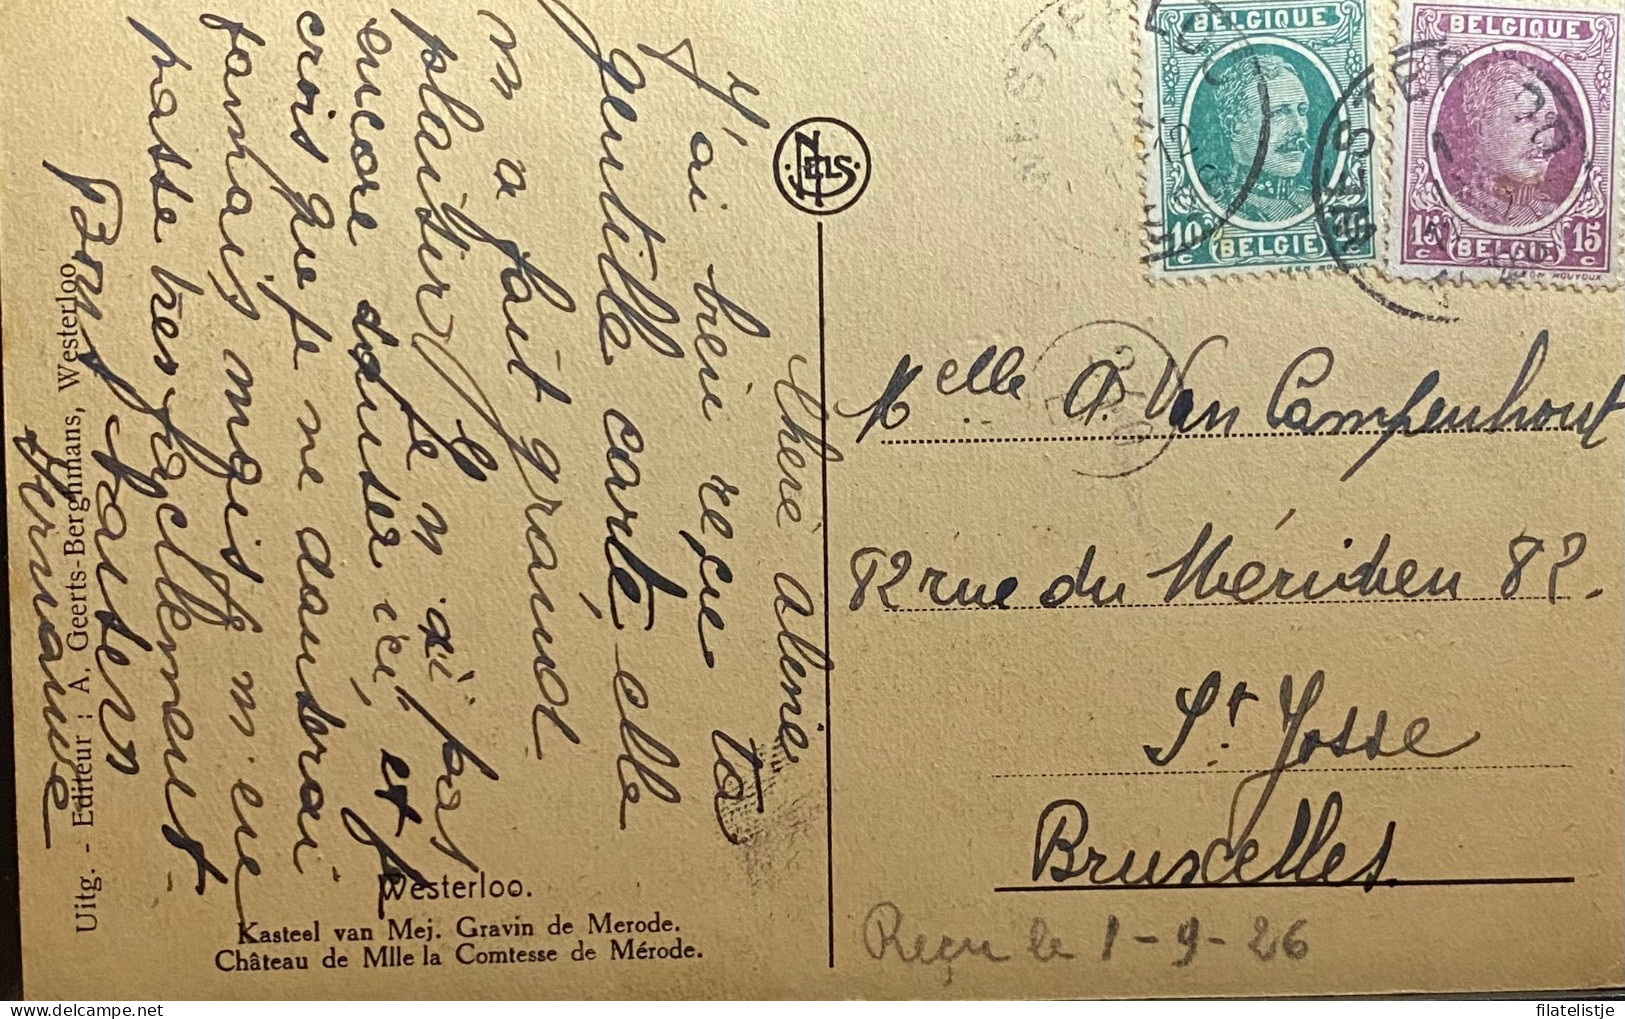 Chère Alémie
J'ai bien reçu ta
gentille carte elle
m'a fait grand
plaisir. Je n'ai pas
encore danser ici, et je
crois que je ne danserai
jamais mais je m'en
passe très facilement
Bons baisers
Germaine
NELS
Westerloo.
Kasteel van Mej. Gravin de Merode.
Château de Mlle la Comtesse de Mérode.
Uitg. - Editeur : A. Geerts-Berghmans, Westerloo
BELGIQUE
10 c
BELGIE
BELGIQUE
15 c
BELGIE
15 c
WESTERLOO
WESTERLOO
Melle A. Van Campenhout
82 rue du Méridien 82.
St. Josse
Bruxelles
Reçu le 1-9-26
filatelistje